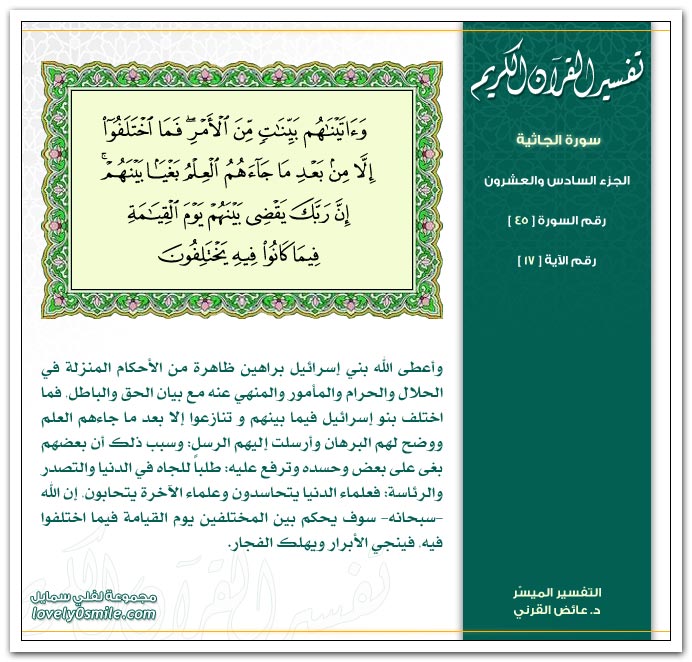 تفسير القرآن الكريم
سورة الجاثية
الجزء السادس والعشرون
رقم السورة [ ٤٥ ]
رقم الآية [ ١٧ ]
وَءَاتَيْنَٰهُم بَيِّنَٰتٍ مِّنَ ٱلْأَمْرِ ۖ فَمَا ٱخْتَلَفُوٓا۟
إِلَّا مِنۢ بَعْدِ مَا جَآءَهُمُ ٱلْعِلْمُ بَغْيًۢا بَيْنَهُمْ ۚ
إِنَّ رَبَّكَ يَقْضِى بَيْنَهُمْ يَوْمَ ٱلْقِيَٰمَةِ
فِيمَا كَانُوا۟ فِيهِ يَخْتَلِفُونَ
وأعطى الله بني إسرائيل براهين ظاهرة من الأحكام المنزلة في
الحلال والحرام والمأمور والمنهي عنه مع بيان الحق والباطل، فما
اختلف بنو إسرائيل فيما بينهم و تنازعوا إلا بعد ما جاءهم العلم
ووضح لهم البرهان وأرسلت إليهم الرسل؛ وسبب ذلك أن بعضهم
بغى على بعض وحسده وترفع عليه؛ طلباً للجاه في الدنيا والتصدر
والرئاسة؛ فعلماء الدنيا يتحاسدون وعلماء الآخرة يتحابون، إن الله
-سبحانه- سوف يحكم بين المختلفين يوم القيامة فيما اختلفوا
فيه، فينجي الأبرار ويهلك الفجار.
تفسير القرآن الكريم
التفسير الميسّر
د. عائض القرني
مجموعة لفلي سمايل
lovely0smile.com